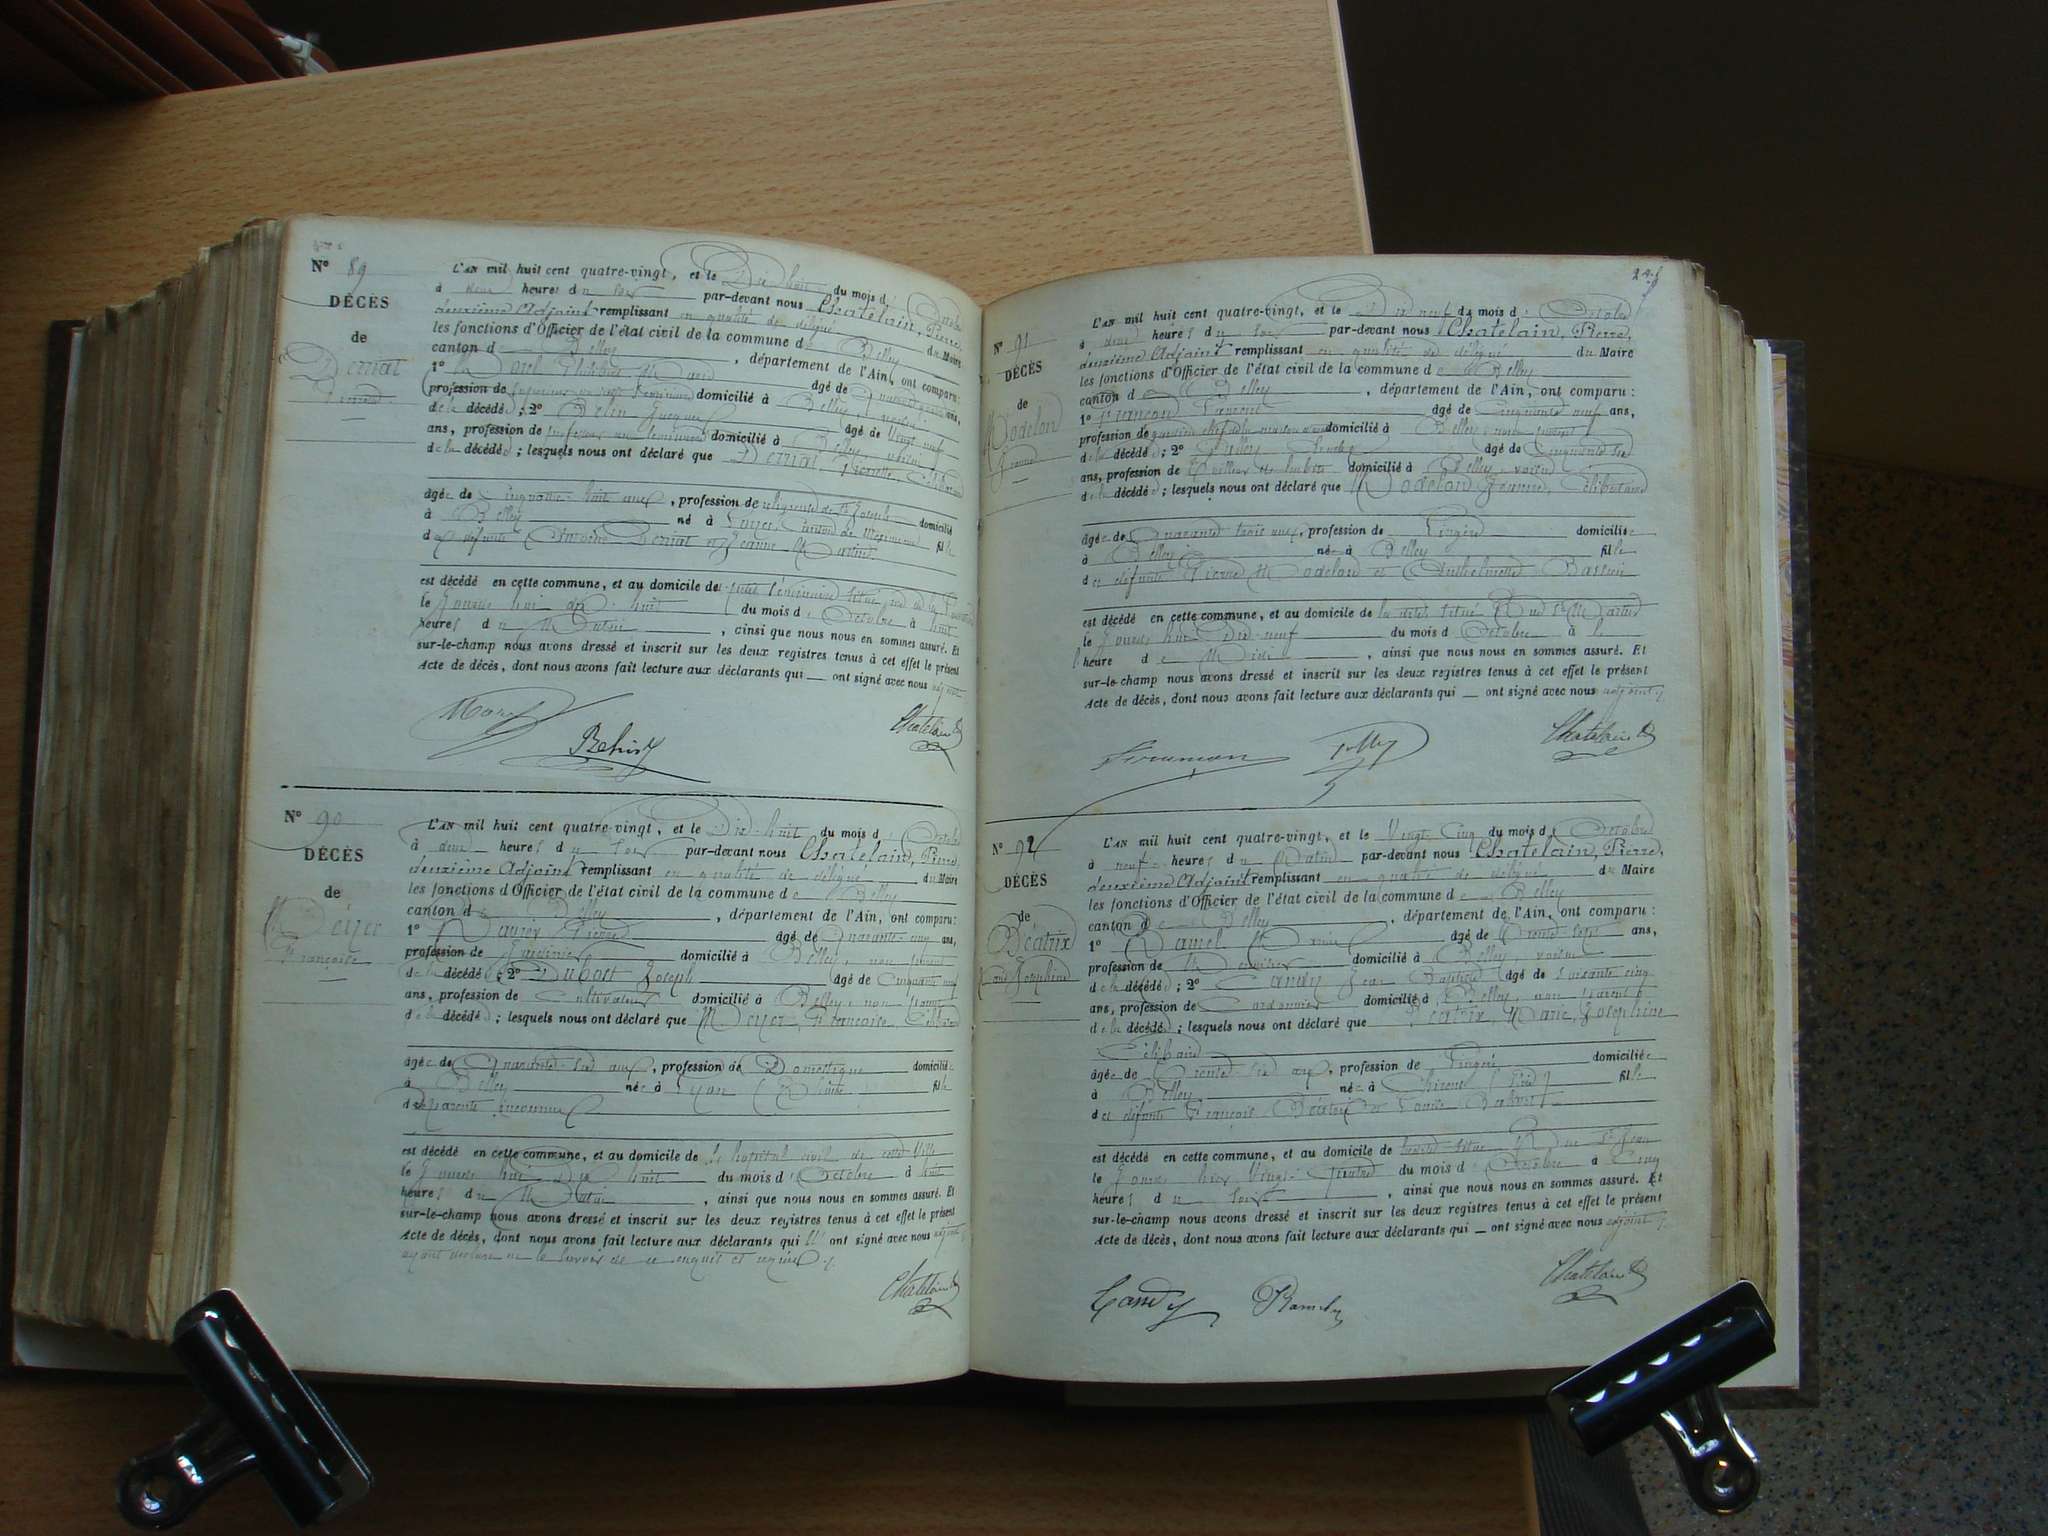 N° 89
DÉCÈS
de
L'AN mil huit cent quatre-vingt, et le Dix huit du mois d'Octobre
à deux heures du soir par-devant nous Chatelain, Pierre,
deuxième Adjoint remplissant en qualité de délégué du Maire
les fonctions d'Officier de l'état civil de la commune de Belley
canton de Belley, département de l'Ain, ont comparu:
1° Philibert âgé de ans,
profession de domicilié à Belley
de la décédée; 2° Belin Jacques âgé de Vingt neuf
ans, profession de professeur au séminaire domicilié à Belley, voisin
de la décédée; lesquels nous ont déclaré que Célibataire
âgée de Cinquante huit ans, profession de religieuse de St Joseph domiciliée
à Belley née à canton de Meximieux fille
de défunts et Jeanne Martin
est décédé en cette commune, et au domicile de petit séminaire situé rue de la
le Jourd'hui dix huit du mois d'Octobre à huit
heures du Matin, ainsi que nous nous en sommes assuré. Et
sur-le-champ nous avons dressé et inscrit sur les deux registres tenus à cet effet le présent
Acte de décès, dont nous avons fait lecture aux déclarants qui — ont signé avec nous adjoint
Chatelain
N° 90
DÉCÈS
de
Meyer
Françoise
L'AN mil huit cent quatre-vingt, et le Dix-huit du mois d'Octobre
à deux heures du soir par-devant nous Chatelain, Pierre,
deuxième Adjoint remplissant en qualité de délégué du Maire
les fonctions d'Officier de l'état civil de la commune de Belley
canton de Belley, département de l'Ain, ont comparu:
1° Pierre âgé de Quarante-cinq ans,
profession de Jardinier domicilié à Belley, non parent
de la décédée; 2° Dubost Joseph âgé de Cinquante neuf
ans, profession de Cultivateur domicilié à Belley, non parent
de la décédée; lesquels nous ont déclaré que Meyer, Françoise, Célibataire
âgée de Quarante-six ans, profession de Domestique domiciliée
à Belley née à Lyon (Rhône) fille
de parents inconnus
est décédé en cette commune, et au domicile de l'hôpital civil de cette Ville
le Jourd'hui Dix huit du mois d'Octobre à huit
heures du Matin, ainsi que nous nous en sommes assuré. Et
sur-le-champ nous avons dressé et inscrit sur les deux registres tenus à cet effet le présent
Acte de décès, dont nous avons fait lecture aux déclarants qui n'ont signé avec nous adjoint
ayant déclaré ne le savoir de ce enquis et requis.
Chatelain
N° 91
DÉCÈS
de
Modelon
Jeanne
L'AN mil huit cent quatre-vingt, et le Dix neuf du mois d'Octobre
à deux heures du soir par-devant nous Chatelain, Pierre,
deuxième Adjoint remplissant en qualité de délégué du Maire
les fonctions d'Officier de l'état civil de la commune de Belley
canton de Belley, département de l'Ain, ont comparu:
1° âgé de Cinquante neuf ans,
profession de gardien chef de la maison domicilié à Belley, non parent
de la décédée; 2° âgé de Cinquante six
ans, profession de Tailleur domicilié à Belley, voisin
de la décédée; lesquels nous ont déclaré que Modelon Jeanne, Célibataire
âgée de Quarante trois ans, profession de Lingère domiciliée
à Belley née à Belley fille
de défunts Pierre Modelon et Anthelmette
est décédé en cette commune, et au domicile de situé Rue St Martin
le Jourd'hui Dix-neuf du mois d'Octobre à
heure de Midi, ainsi que nous nous en sommes assuré. Et
sur-le-champ nous avons dressé et inscrit sur les deux registres tenus à cet effet le présent
Acte de décès, dont nous avons fait lecture aux déclarants qui — ont signé avec nous adjoint
Chatelain
N° 92
DÉCÈS
de
Béatrix
Marie Joséphine
L'AN mil huit cent quatre-vingt, et le Vingt-Cinq du mois d'Octobre
à neuf heures du Matin par-devant nous Chatelain, Pierre,
deuxième Adjoint remplissant en qualité de délégué du Maire
les fonctions d'Officier de l'état civil de la commune de Belley
canton de Belley, département de l'Ain, ont comparu:
1° Ramel âgé de Trente-sept ans,
profession de Menuisier domicilié à Belley voisin
de la décédée; 2° Candy Jean Baptiste âgé de Soixante cinq
ans, profession de Cordonnier domicilié à Belley, non parent
de la décédée; lesquels nous ont déclaré que Béatrix, Marie, Joséphine
Célibataire
âgée de Trente-six ans, profession de Lingère domiciliée
à Belley née à Chirens (Isère) fille
de défunts François Béatrix et Louise
est décédé en cette commune, et au domicile de situé Rue St Jean
le Jour d'hier Vingt-Quatre du mois d'Octobre à Cinq
heures du soir, ainsi que nous nous en sommes assuré. Et
sur-le-champ nous avons dressé et inscrit sur les deux registres tenus à cet effet le présent
Acte de décès, dont nous avons fait lecture aux déclarants qui — ont signé avec nous adjoint
Chatelain
Candy Ramel